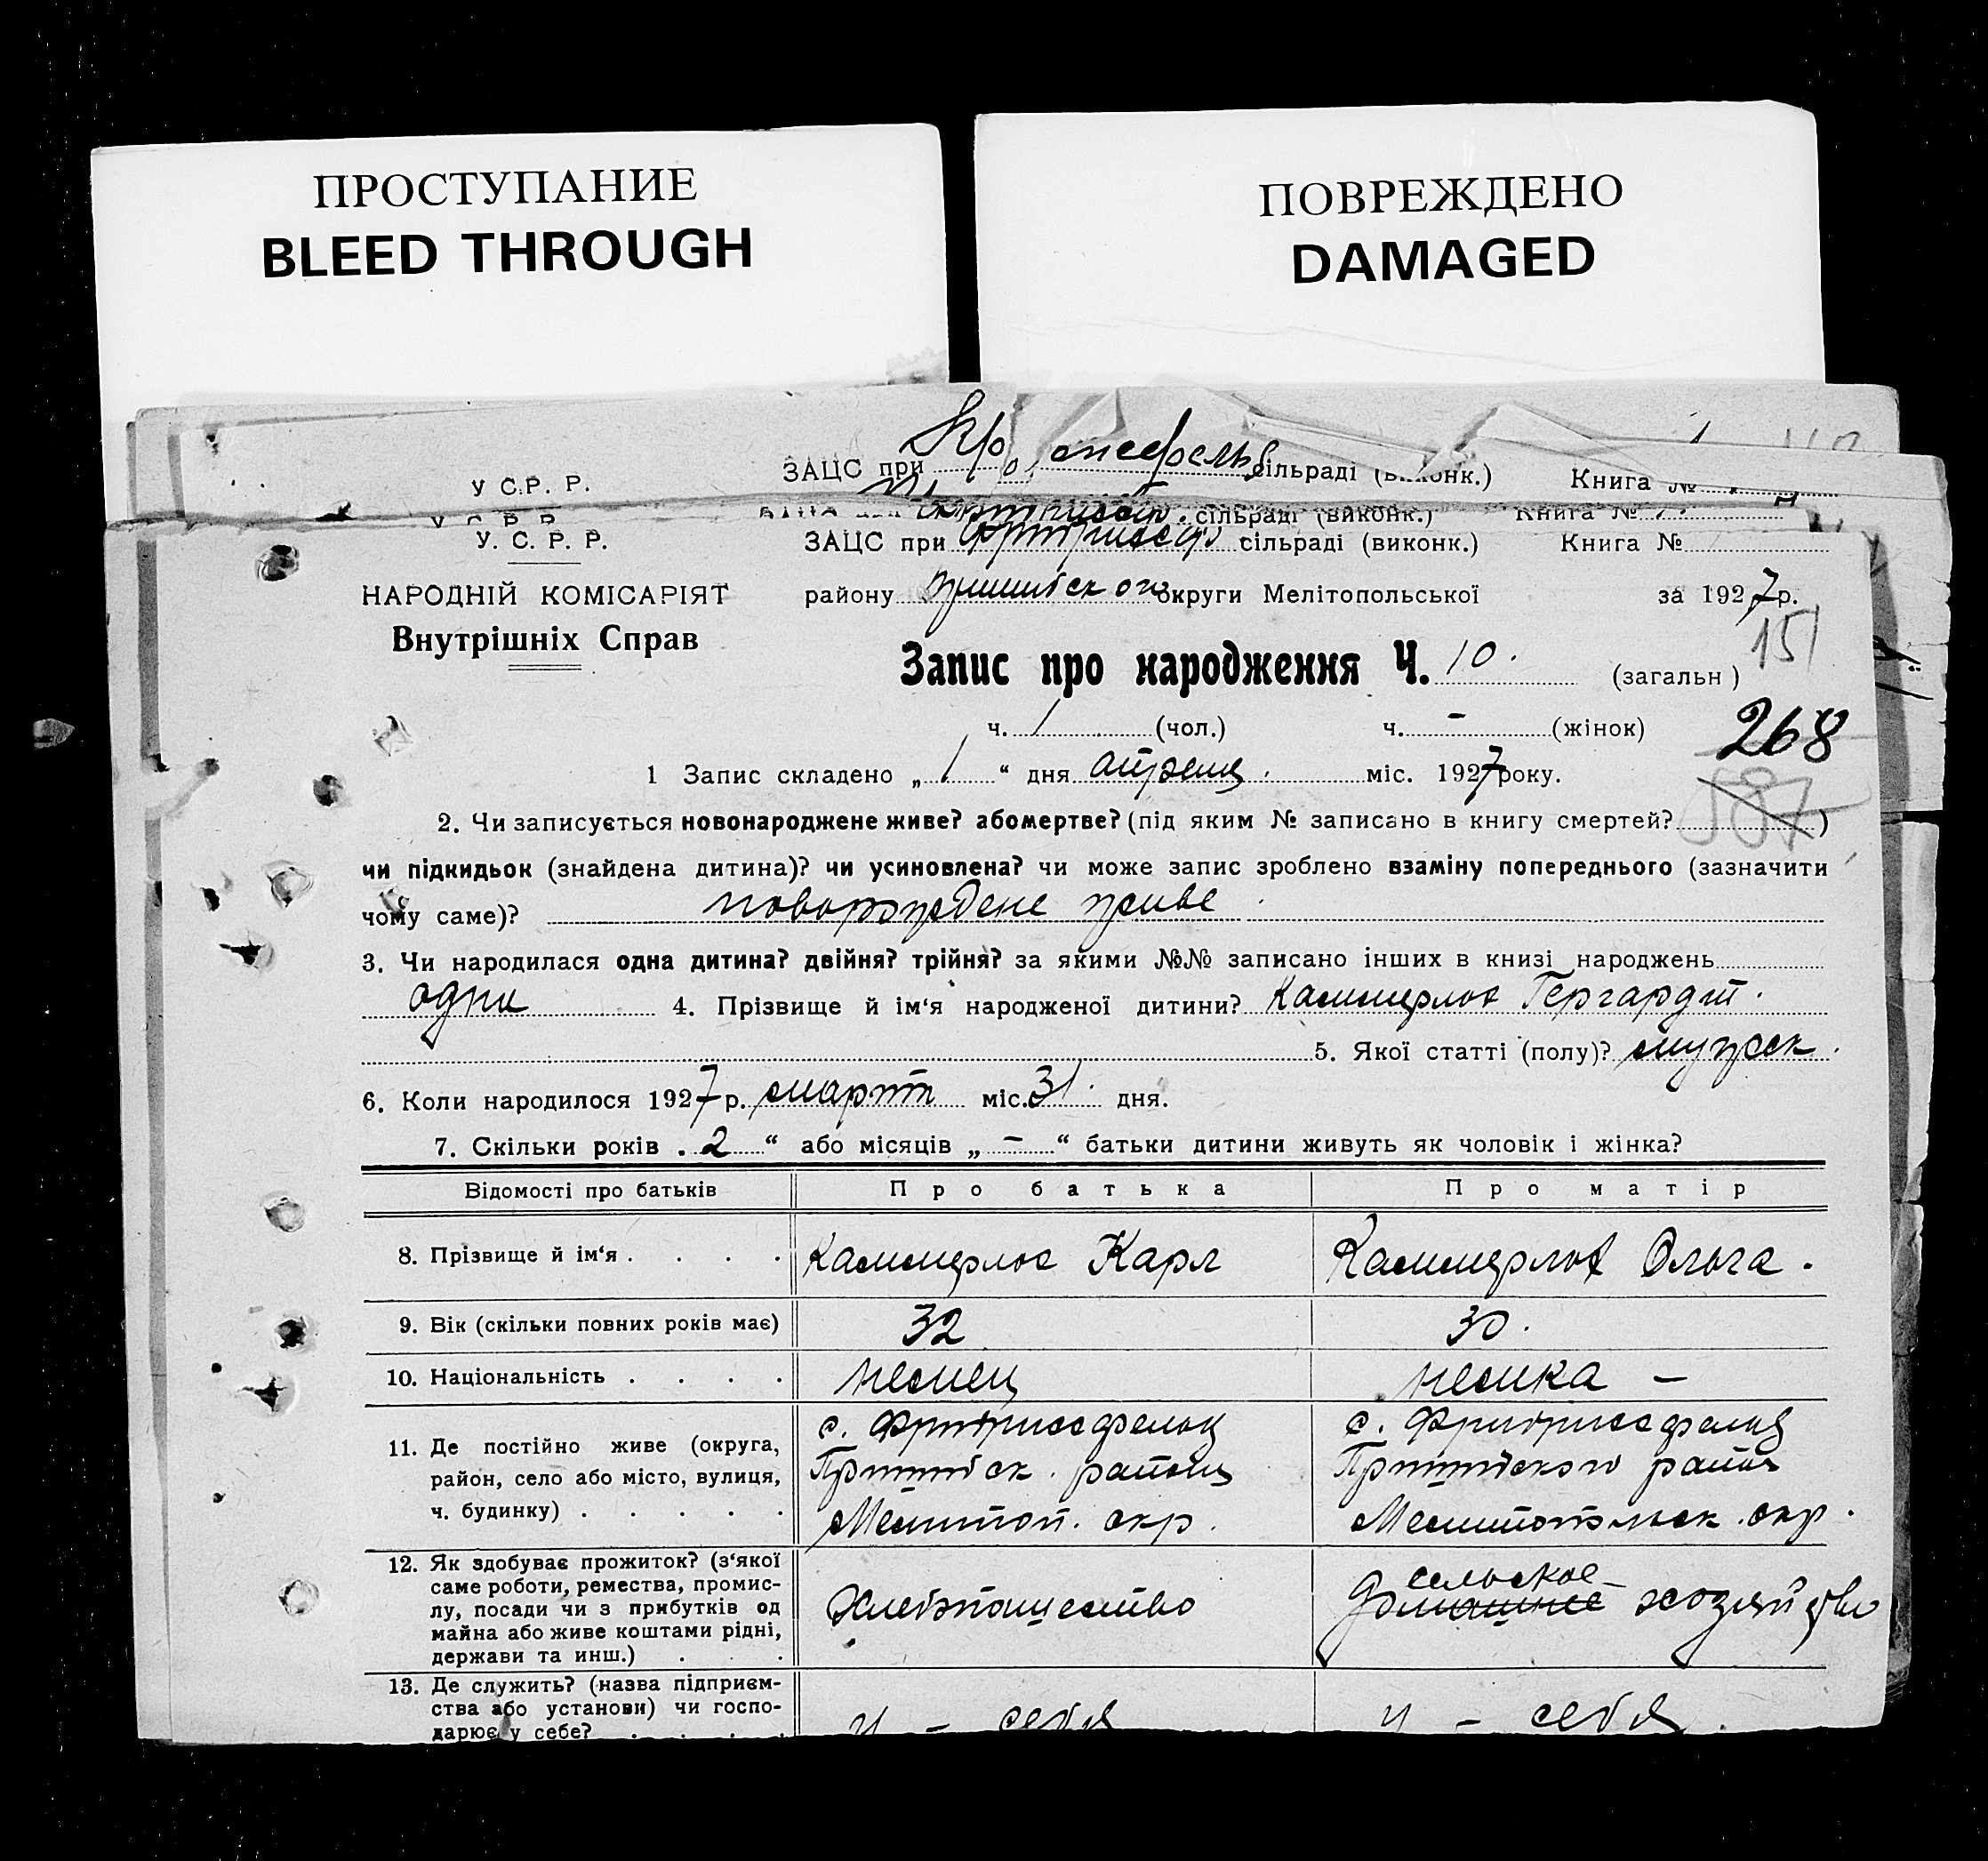 ПРОСТУПАНИЕ
BLEED THROUGH
ПОВРЕЖДЕНО
DAMAGED
У С.Р. Р. ЗАЦС при сільраді Книга №
сільраді (виконк.) Книга №
У. С. Р. Р. ЗАЦС при сільраді (виконк.) Книга №
НАРОДНІЙ КОМІСАРІЯТ району округи Мелітопольської за 1927 р.
Внутрішніх Справ
151
Запис про народження Ч. 10. (загальн)
ч. 1 (чол.) ч. – (жінок)
268
1 Запис складено „ 1 “ дня апреля. міс. 1927 року.
587
2. Чи записується новонароджене живе? або мертве? (під яким № записано в книгу смертей? )
чи підкидьок (знайдена дитина)? чи усиновлена? чи може запис зроблено взаміну попереднього (зазначити
чому саме)? живе
3. Чи народилася одна дитина? двійня? трійня? за якими №№ записано інших в книзі народжень
4. Прізвище й ім‘я народженої дитини? Каммерлох Гергардт.
5. Якої статті (полу)? мужск.
6. Коли народилося 1927 р. март міс. 31. дня.
7. Скільки років „ 2 “ або місяців „ – “ батьки дитини живуть як чоловік і жінка?
Відомості про батьків Про батька Про матір
8. Прізвище й ім‘я . . . . Каммерлох Карл Каммерлох Ольга.
9. Вік (скільки повних років має) 32 30.
10. Національність . . . . немец немка –
11. Де постійно живе (округа,
район, село або місто, вулиця,
ч. будинку) . . . . .
с. Фридрихсфельд
Пришибск. района
Мелитоп. окр.
с. Фридрихсфельд
Пришибского района
Мелитопольск. окр.
12. Як здобуває прожиток? (з‘якої
саме роботи, ремества, промис-
лу, посади чи з прибутків од
майна або живе коштами рідні,
держави та инш.) . . .
Хлебопашество
сельское
домашнее хозяйство
13. Де служить? (назва підприєм-
ства або установи) чи госпо-
дарює у себе? . . . .
у – себя
у – себя.